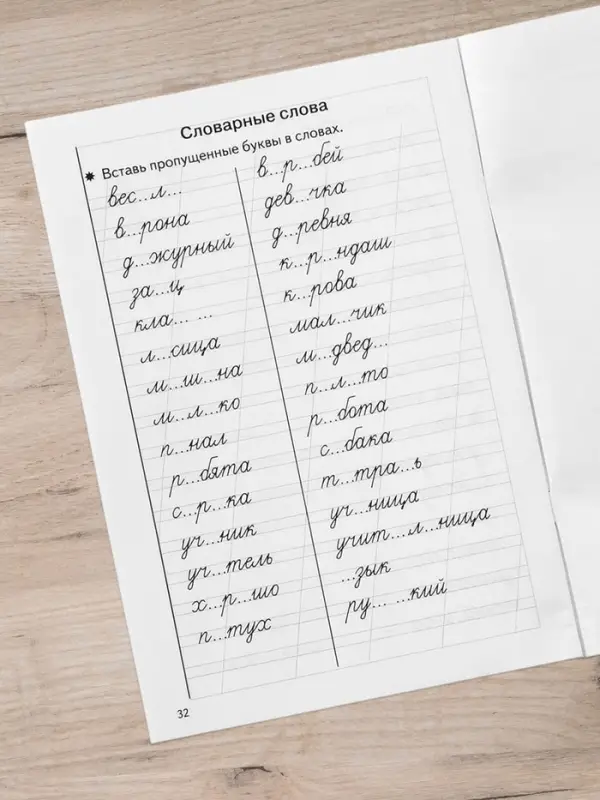 Словарные слова
✷ Вставь пропущенные буквы в словах.
вес...л...
в...рона
д...журный
за...ц
кла... ...
л...сица
м...ши...на
м...л...ко
п...нал
р...бята
с...р...ка
уч...ник
уч...тель
х...р...шо
п...тух
в...р...бей
дев...чка
д...ревня
к...р...ндаш
к...рова
мал...чик
м...двед...
п...л...то
р...бота
с...бака
т...тра...ь
уч...ница
учит...л...ница
...зык
ру... ...кий
32